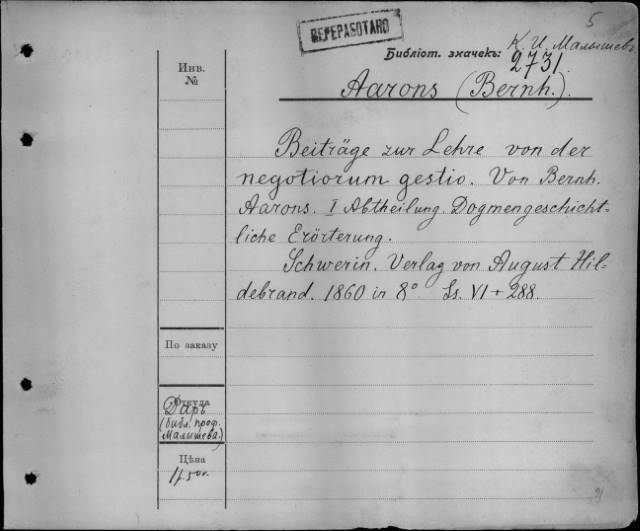 5
ПЕРЕРАБОТАНО
К. И. Малышевъ
Библіот. значекъ: 2731.
Инв.
№
Aarons (Bernh.).
Beiträge zur Lehre von der
negotiorum gestio. Von Bernh.
Aarons. I Abtheilung. Dogmengeschicht-
liche Erörterung.
Schwerin. Verlag von August Hil-
debrand. 1860 in 8° Ss. VI + 288.
По заказу
Откуда
Даръ
(библ. проф.
Малышева.)
Цѣна